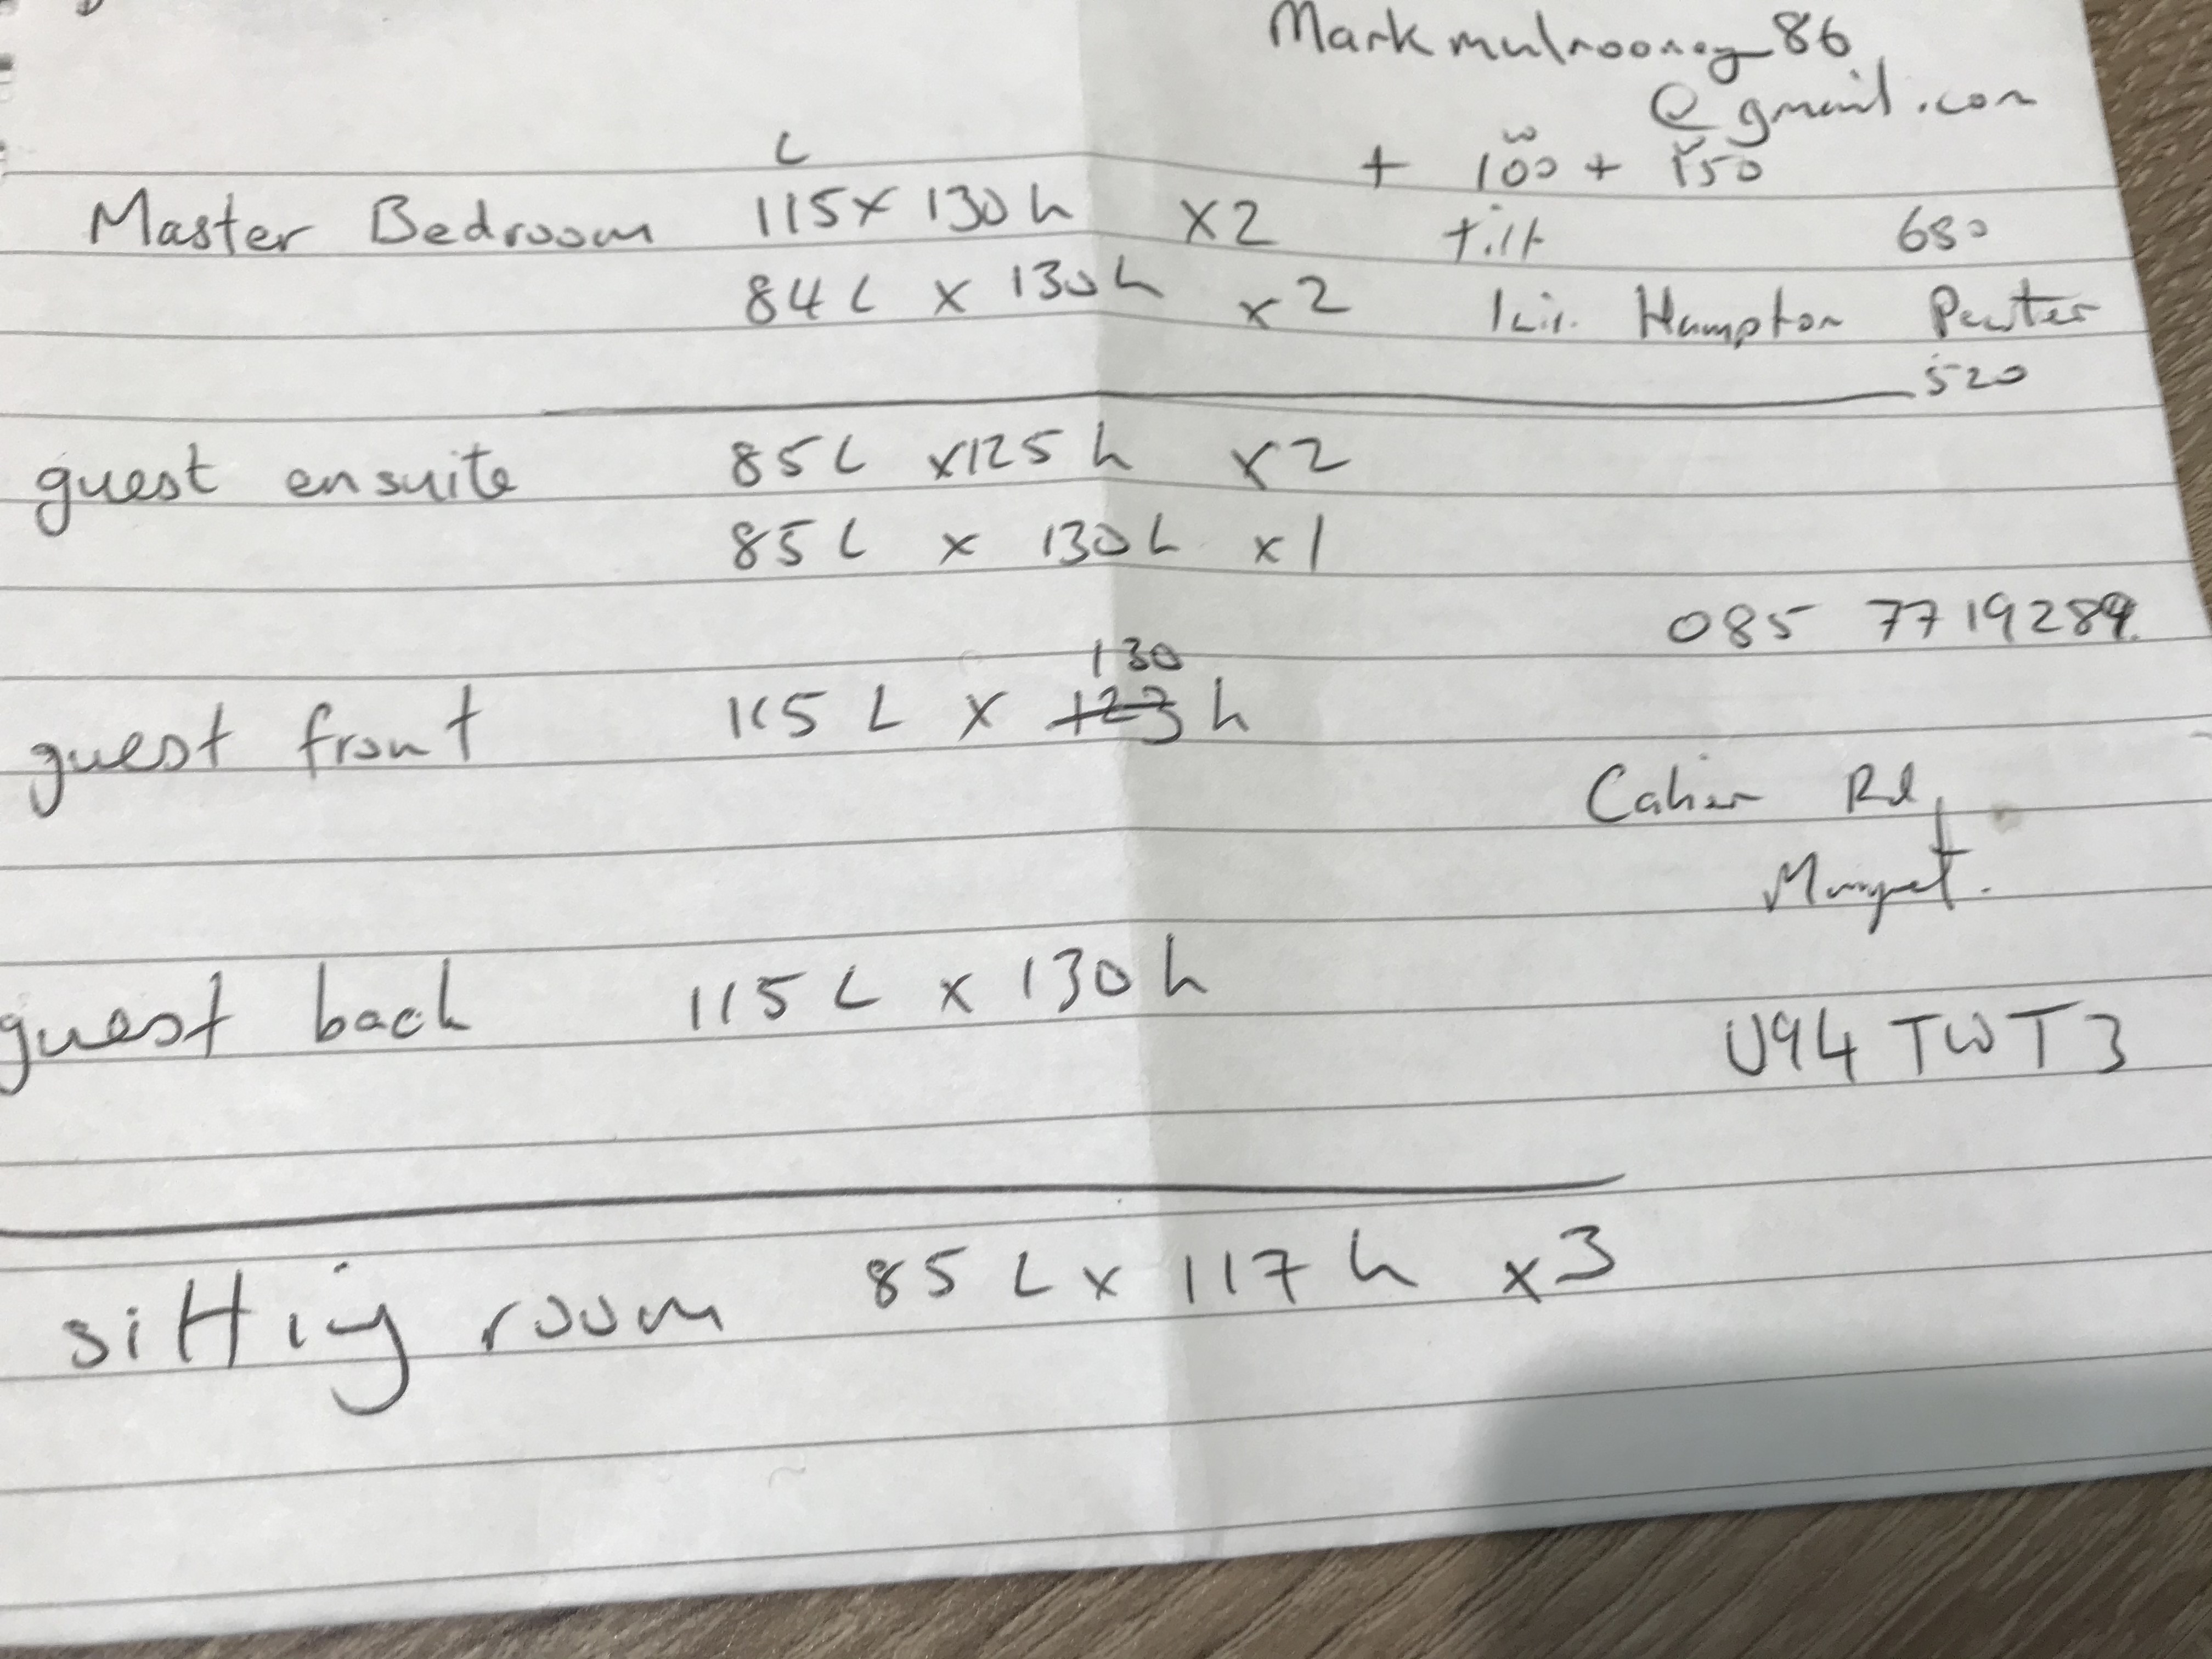 Markmulrooney86
@gmail.com
L
+ 100 + 150
Master Bedroom 115 x 130 h x2 tilt 650
84 L x 130 h x2 Hampton Pewter
520
guest ensuite 85 L x 125 h x2
85 L x 130 h x1
085 7719289
130
guest front 115 L x 123 h
Caher Rd,
Mungret.
guest back 115 L x 130 h
V94 TWT3
sitting room 85 L x 117 h x3